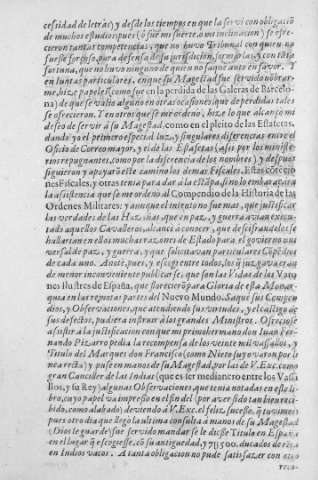 cessidad de letras) y desde los tiempos en que la serví con obligaciõ
de muchos estudios pues (ò fuè mi suerte, ò mi inclinacion) se ofre-
cieron tantas competencias, que no huvo Tribunal con quien no
fuesse forçoso, para defensa de su jurisdicion, formarlas, y con tal
fortuna, que no huvo ninguno de quien no saquè auto en favor. Y
en Juntas particulares, en que su Magestad fue servido nõbrar-
me, hize papeles (como fue en la perdida de las Galeras de Barcelo-
na) de que se valiò alguno en otras ocasiones, que de perdidas tales
se ofrecieron. Y en otros que se me ordenò, hize lo que alcançò mi
deseo de servir à su Magestad, como en el pleito de las Estafetas,
dando yo el primero especial luz, y singulares diferencias entre el
Oficio de Correo mayor, y el de las Estafetas (assi por los ministe-
rios repugnantes, como por la diferencia de los nombres) y despues
siguieron y apoyarõ este camino los demas Fiscales. Estas
nes Fiscales, y otras tenia para dar à la estãpa, sino lo embaraçara
la assistencia que se me ordenò al Compendio de la Historia de las
Ordenes Militares: y aunque el intento no fue mas, que justificar
las verdades de las Hazañas que en paz, y guerra avian execu-
tado aquellos Cavalleros, alcancè à conocer, que de seis fundos se
hallarian en ellos muchas razones de Estado para el govierno uni
versal de paz, y guerra, y que solicitavan particulares Cõpẽdios
de cada uno. Anotè, pues, y escogì entre todos, los q̃ juzgava eran
de menor inconveniente publicarse, que son las Vidas de los Varo
nes Ilustres de España, que florecierõ para Gloria de esta Monar-
quia en las repostas partes del Nuevo Mundo. Saquè sus Compen
dios, y Observaciones, que atendiendo sus virtudes, y el castigo de
sus defectos, pudiera instruir à los grandes Ministros. Ofreciose
assistir à la justificacion con que mi primo hermano don Juan Fer-
nando Pizarro pedia la recompensa de los veinte mil vassallos, y
Titulo del Marques don Francisco (como Nieto suyo varon por li
nea recta) y puse en manos de su Magestad, por las de V. Exc. como
gran Canciller de las Indias (que es ser medianero entre los Vassa
llos, y su Rey) algunas Observaciones, que tenia notadas en este li-
bro, cuyo papel va impresso en el fin del (por aver sido tan bien re-
cibido, como alabado) deviendo à V. Exc. el feliz sucesso, q̃ tuvo, pues
otro dia que llegò la ultima consulta à manos de su Magestad
(Dios le guarde) fue servido mandar se le diesse Titulo en España
en el lugar q̃ escogiesse, cõ su antiguedad, y 7U500. ducados de rẽta
en Indios vacos. A tanta obligacion no pude satisfazer con otro